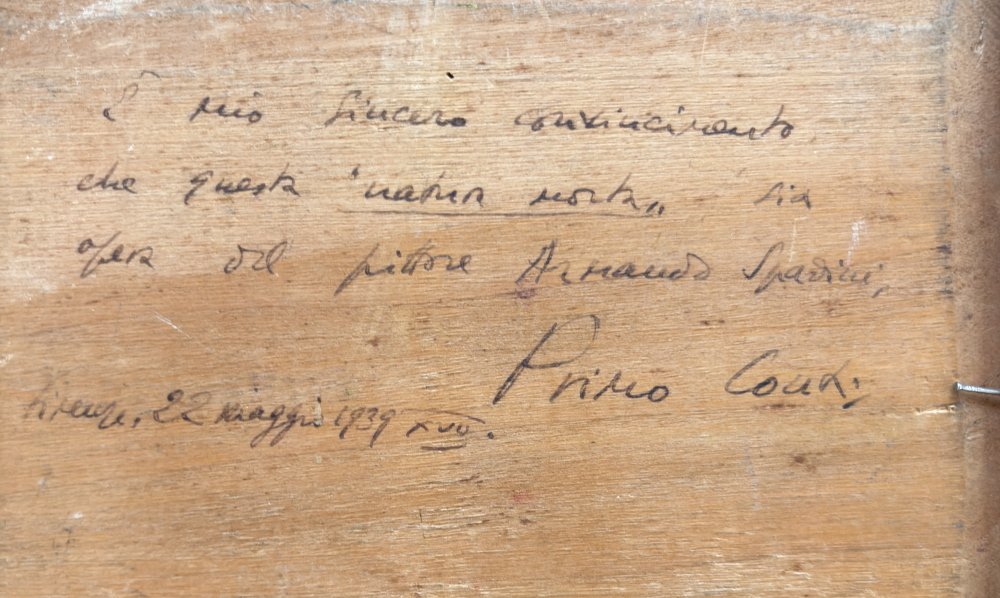 È mio sincero convincimento
che questa "natura morta„ sia
opera del pittore Armando Spadini,
Primo Conti,
Firenze, 22 maggio 1939 XVII.